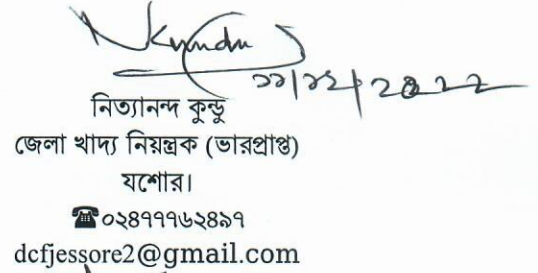 NKundu
১১/১২/২০২২
নিত্যানন্দ কুন্ডু
জেলা খাদ্য নিয়ন্ত্রক (ভারপ্রাপ্ত)
যশোর।
☎০২৪৭৭৭৬২৪৯৭
dcfjessore2@gmail.com